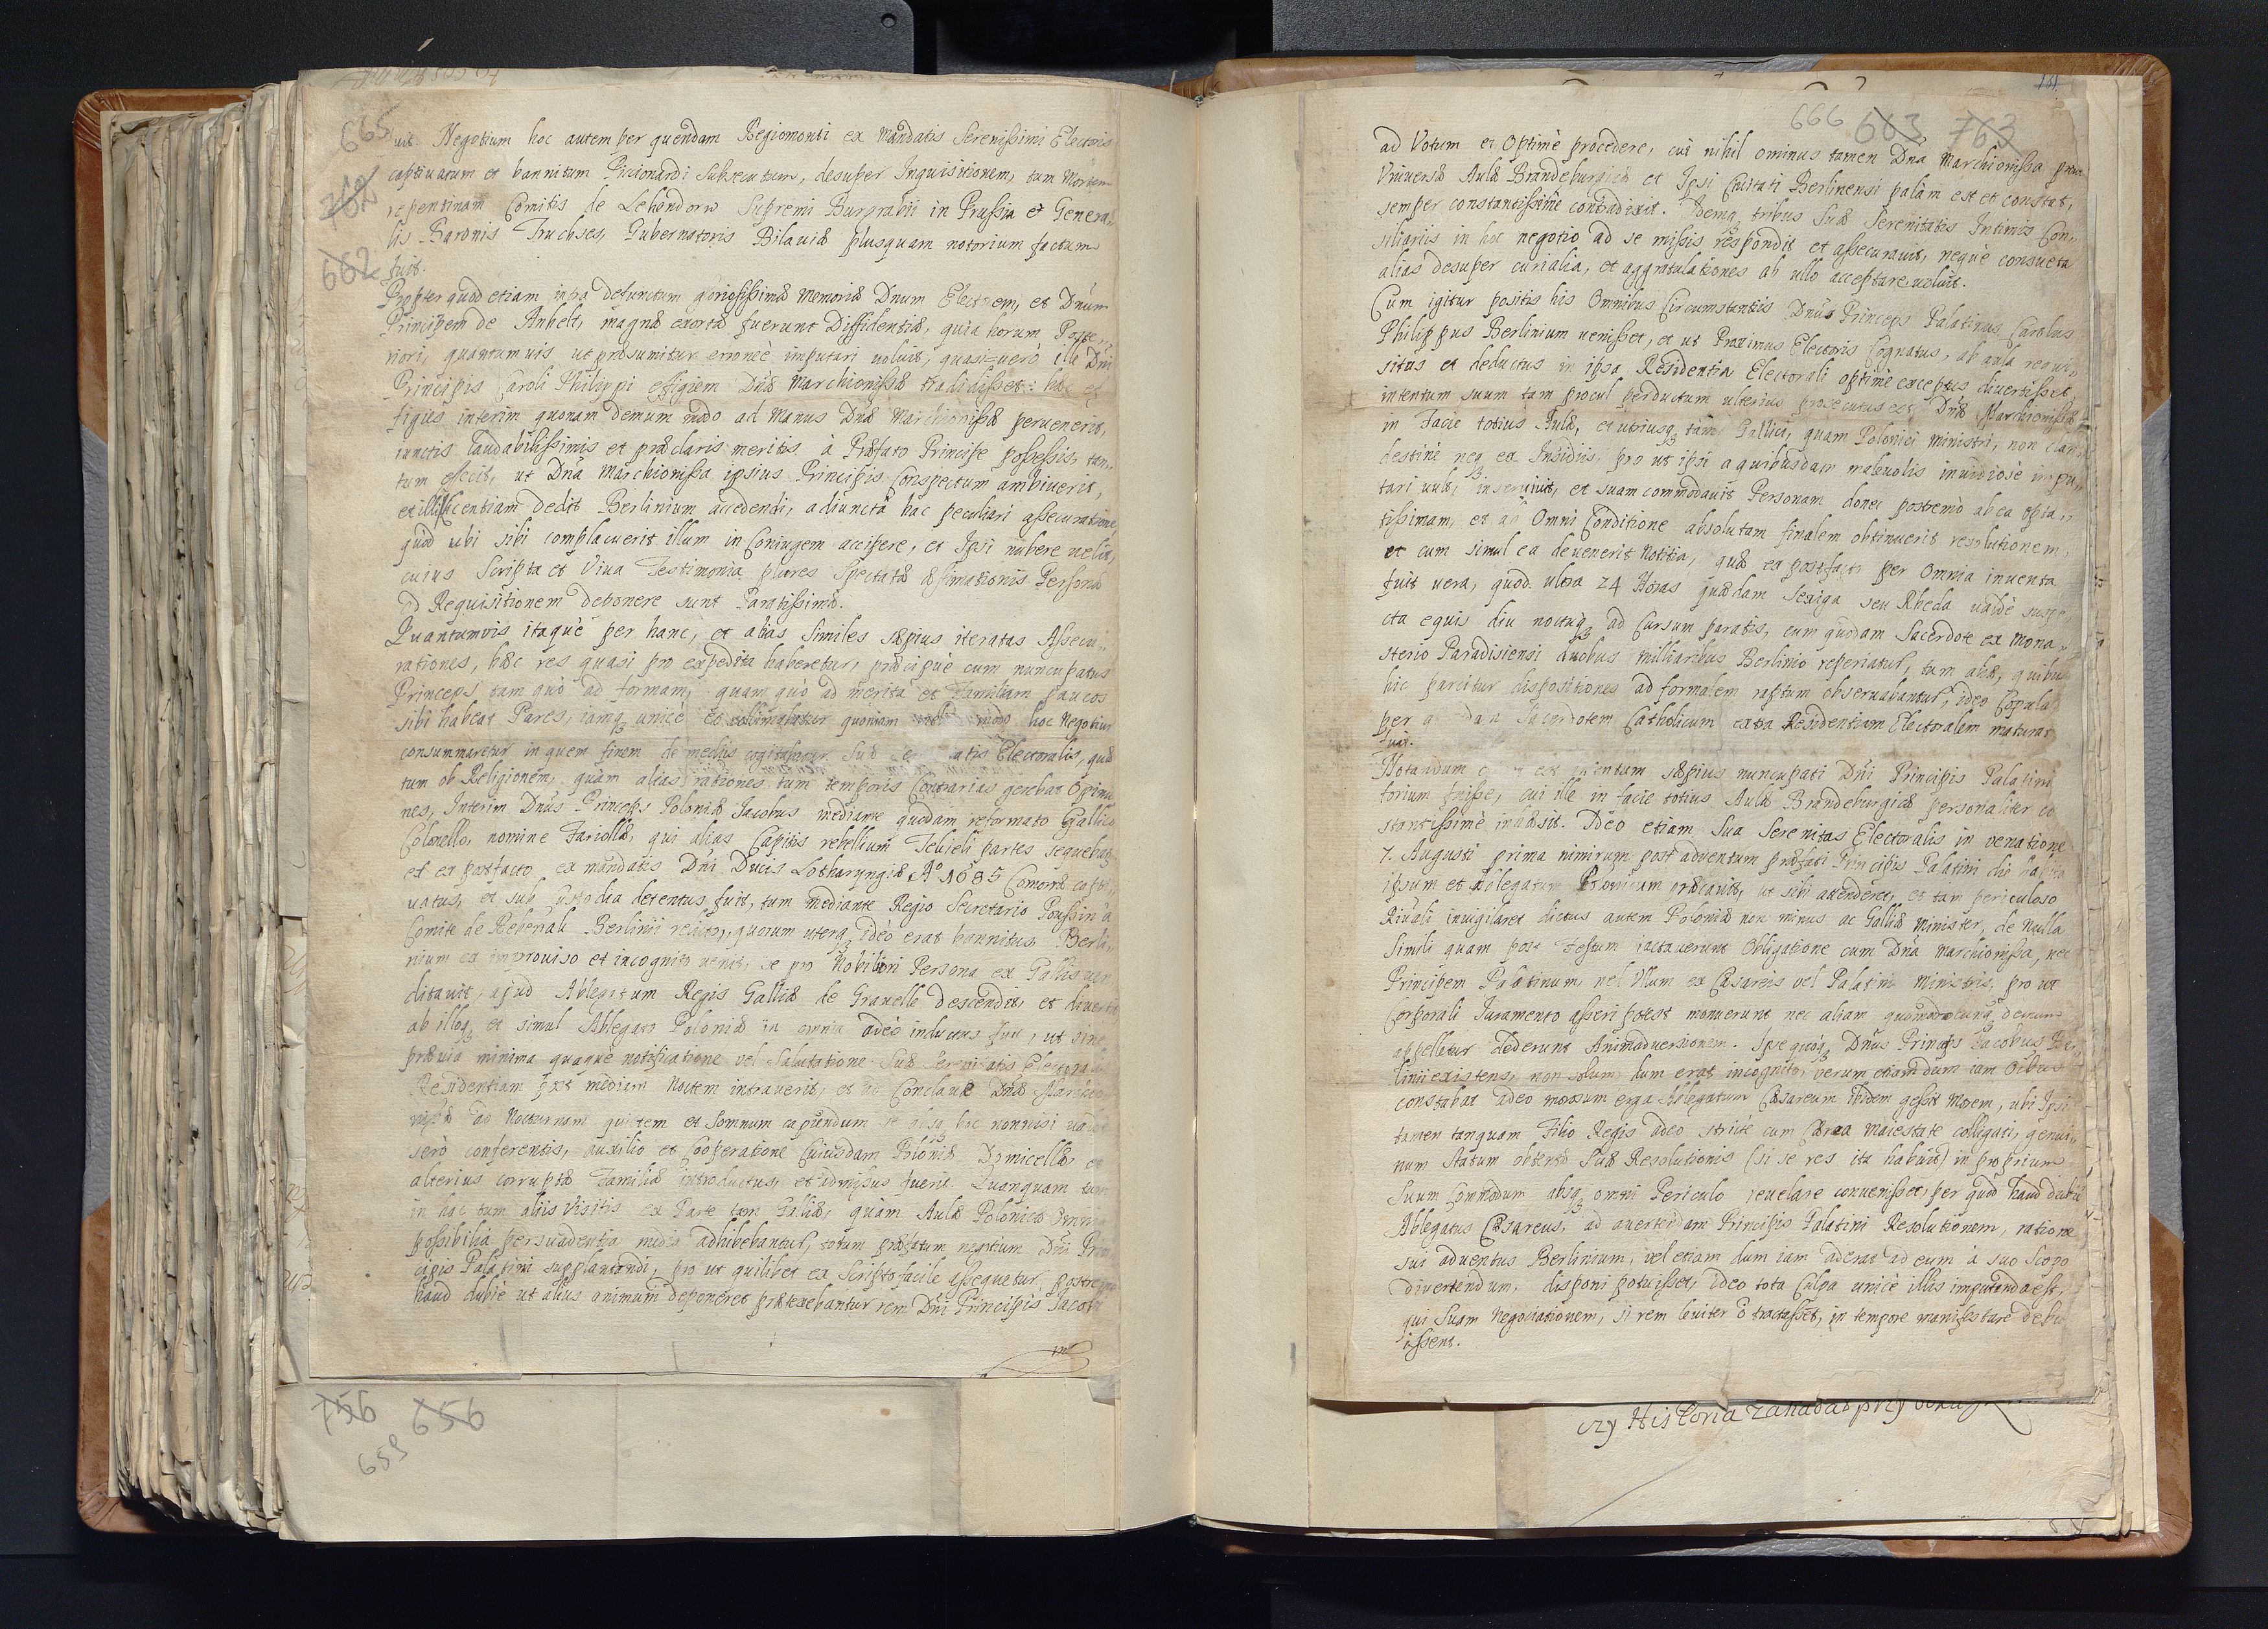 665
762
662
uit. Negotium hoc autem per quendam Regiomonti ex Mandatis Serenissimi Electoris
captivatum et bannitum Picinardi subsecutum, desuper Inquisitionem, tum Mortem
repentinam Comitis de Lehendorw Supremi Burgrabii in Prussia et Genera„
lis Baronis Truchses, Gubernatoris Bilaviæ plusquam notorium factum
fuit.
Propter quod etiam intra defunctum gloriosissimæ Memoriæ Dnum Electorem, et Dnum
Principem de Anhelt, magnæ exortæ fuerunt Diffidentiæ, quia horum Poste„
riori, quantumvis ut præsumitur erroneè imputari voluit, quasi verò ille Dni
Principis Caroli Philippi effigiem Dnæ Marchionissæ tradidisset: hæc ef
figies interim quonam demum modo ad Manus Dnæ Marchionissæ pervenerit,
iunctis laudabilissimis et præclaris meritis à Præfato Principe possessis, tan„
tum effecit, ut Dna Marchionissa ipsius Principis Conspectum ambiverit,
et illi licentiam dedit Berlinium accedendi, adiuncta hac peculiari assecuratione,
quod ubi sibi complacuerit illum in Coniugem accipere, et Ipsi nubere velit,
cuius Scripta et Viva Testimonia plures Spectatæ æstimationis Personæ
ad Requisitionem deponere sunt Paratissimæ.
Quantumvis itaquè per hanc, et alias similes sæpius iteratas Assecu„
rationes, hæc res quasi pro expedita haberetur, præcipuè cum nuncupatus
Princeps tam quò ad formam, quam quò ad merita et Familiam paucos
sibi habeat Pares, iamq unicè eo collimabatur quoniam modo hoc Negotium
consummaretur in quem finem de mediis cogitabatur Suæ Serenitatis Electoralis, quæ
tum ob Religionem, quàm alias rationes tum temporis Contrarias gerebat Opinio
nes, Interim Dnus Princeps Poloniæ Jacobus mediante quodam reformato Gallico
Colonello, nomine Fariollæ, qui alias Capitis rebellium Tekieli partes sequebatur
et ex postfacto ex mandatis Dni Ducis Lotharyngiæ Aº 1685 Comorræ capti„
vatus, et sub Custodia detentus fuit, tum mediante Regio Secretario Poussin à
Comite de Rebenak Berlinii relicto, quorum uterq ideo erat bannitus, Berli„
nium ex improviso et incognito venit, se pro Nobiliori Persona ex Gallis ven
ditavit, apud Ablegatum Regis Galliæ de Gravelle descendit, et divertit
ab illoq et simul Ablegato Poloniæ in omnia adeò inductus fuit, ut sine
prævia minima quaquè notificatione vel Salutatione Suæ Serenitatis Electoralis
Residentiam post mediam Noctem intraverit, et ad Conclave Dnæ Marchio
nissæ ad Nocturnam quietem et Somnum capiendum se absq hoc nonnisi valdè
serò conferentis, auxilio et Cooperatione Cuiusdam Polonæ Domicellæ, et
alterius corruptæ Familiæ introductus, et admissus fuerit. Quanquam tum
in hac tum aliis Visitis ex Parte tam Galliæ, quàm Aulæ Polonicæ Omnia
possibilia persuadentia media adhibebantur, totum præfatum negotium Dni Prin
cipis Palatini supplantandi, pro ut quilibet ex Scripto facile assequetur, postremo
haud dubiè ut alius animum deponeret prætexebantur rem Dni Principis Jacobi
756 656
659
161
666 663 763
ad Votum et Optimè procedere, cui nihil ominus tamen Dna Marchionissa prout
Universæ Aulæ Brandeburgicæ et Ipsi Civitati Berlinensi palàm est et constat,
semper constantissimè contradixit. Idemq tribus Suæ Serenitatis Intimis Con„
siliariis in hoc negotio ad se missis respondit et assecuravit, nequè consueta
alias desuper curialia, et aggratulationes ab ullo acceptare voluit.
Cum igitur positis his Omnibus Circumstantiis Dnus Princeps Palatinus Carolus
Philippus Berlinium venisset, et ut Proximus Electoris Cognatus, ab aula requi„
situs et deductus in ipsa Residentia Electorali optimè exceptus divertisset,
intentum suum tam procul perductum ulterius prosecutus est, Dnæ Marchionissæ
in Facie totius Aulæ, et utriusq tam Gallici, quam Polonici ministri, non clan„
destinè neq ex Insidiis, pro ut ipsi a quibusdam malevolis invidiosè impu„
tari vult, inservivit, et suam commodavit Personam donec postremò ab ea opta„
tissimam, et ab Omni Conditione absolutam finalem obtinuerit resolutionem,
et cum simul ea devenerit Notitia, quæ ex postfacto per Omnia inventa
fuit vera, quod ultra 24 Horas quædam Sexiga seu Rheda valdè suspe
cta equis diu noctuq ad Cursum paratis, cum quodam Sacerdote ex Mona„
sterio Paradisiensi duobus milliaribus Berlinio reperiatur, tum aliæ, quibus
hic parcitur dispositiones ad formalem raptum observabantur, ideo Copula
per Sacerdotem Catholicum extra Residentiam Electoralem maturat
fuit.
Notandum est intentum sæpius nuncupati Dni Principis Palatini
torium fuisse, cui ille in facie totius Aulæ Brandeburgicæ personaliter co
stantissimè inhæsit. Ideo etiam Sua Serenitas Electoralis in venatione
7. Augusti prima nimirum post adventum præfati Principis Palatini die habita
ipsum et Ablegatum Polonicum præcavit, ut sibi attenderet, et tam periculoso
Rivali invigilaret dictus autem Poloniæ non minus ac Galliæ Minister, de Nulla
simili quam post Festum iactaverunt Obligatione cum Dna Marchionissa, nec
Principem Palatinum nec Ullum ex Cæsareis vel Palatinis Ministris, pro ut
Corporali Iuramento asseri potest monuerunt nec aliam quomodocunq demum
appelletur dederunt Animadversionem. Ipse quoq Dnus Princeps Jacobus Ber„
linii existens, non solum dum erat incognito, verum etiam dum iam Oibus
constabat adeo morosum erga Ablegatum Cæsareum ibidem gessit Morem, ubi Ipsi
tamen tanquam Filio Regis adeo strictè cum Cæsarea Maiestate colligati, genui„
num statum obtentæ Suæ Resolutionis (si se res ita habuit) in proprium
Suum Commodum absq omni Periculo revelare convenisset, per quod haud dubiè
Ablegatus Cæsareus, ad avertendam Principis Palatini Resolutionem, ratione
sui adventus Berlinium, vel etiam dum iam aderat ad eum à suo Scopo
divertendum, disponi potuisset, ideo tota Culpa unicè illis imputanda est,
qui Suam Negociationem, si rem leviter õ tractasset, in tempore manifestare debu
issent.
Historia